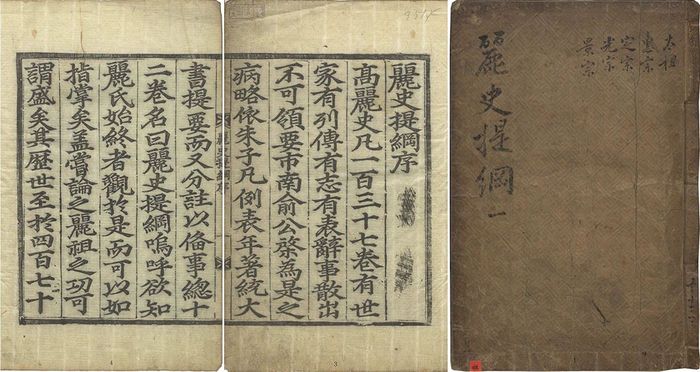 太祖
惠宗
定宗
光宗
景宗
麗史提綱 一
麗史提綱序
髙麗史凡一百三十七卷有世
家有列傳有志有表辭事散出
不可領要市南俞公棨為是之
病略依朱子凡例表年著統大
麗史提綱序
書提要而又分註以俻事總十
二卷名曰麗史提綱嗚呼欲知
麗氏始終者觀於是而可以如
指掌矣盖嘗論之麗祖之功可
謂盛矣其歷世至於四百七十
3
4